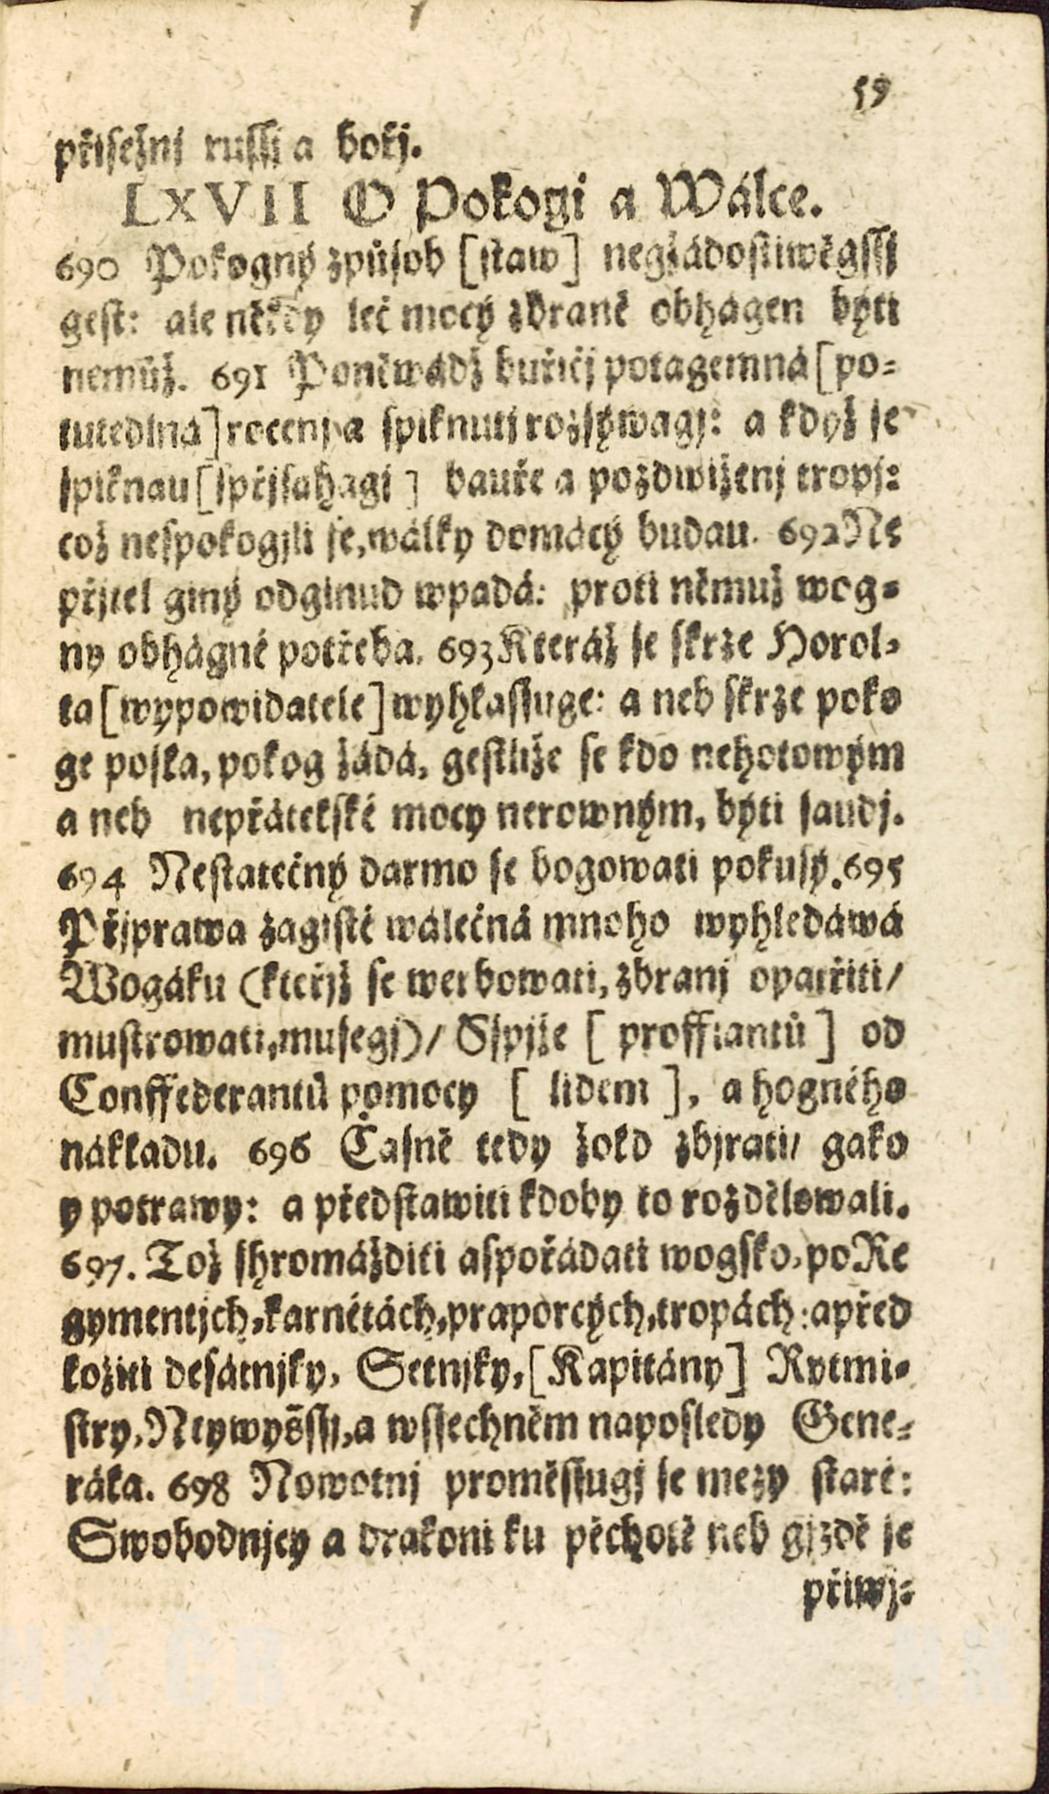 59
přisežnj russj a bořj.
LXVII O Pokogi a Wálce.
690 Pokogný způsob [staw] negžádostiwěgssj
gest: ale někdy leč mocý zbraně obhágen býti
nemůž. 691 Poněwádž buřičj potagemná [po-
tutedlná] rocenja spiknutj rozsýwagj: a když se
spiknau [spřjsahagj] bauře a pozdwiženj tropj:
což nespokogjli se, wálky domácý budau. 692 Ne
přjtel giný odginud wpadá: proti němuž wog-
ny obhágné potřeba. 693 Kteráž se skrze Horol-
ta [wypowidatele] wyhlassuge: a neb skrze poko
ge posla, pokog žádá, gestliže se kdo nehotowým
a neb nepřátelské mocy nerowným, býti saudj.
694 Nestatečný darmo se bogowati pokusý. 695
Přjprawa zagisté wálečná mnoho wyhledáwá
Wogáku (kteřjž se werbowati, zbranj opatřiti/
mustrowati, musegj)/ Sspjže [ proffiantů ] od
Conffederantů pomocy [ lidem ], a hogného
nákladu. 696 Časně tedy žold zbjrati/ gako
y potrawy: a předstawiti kdoby to rozdělowali.
697. Též shromážditi aspořádati wogsko, po Re
gymentjch, karnétách, praporcých, tropách: apřed
ložiti desátnjky, Setnjky, [Kapitány] Rytmi-
stry, Neywyšssj, a wssechněm naposledy Gene-
rála. 698 Nowotnj proměssugj se mezy staré:
Swobodnjcy a drakoni ku pěchotě neb gjzdě se
přiwj-